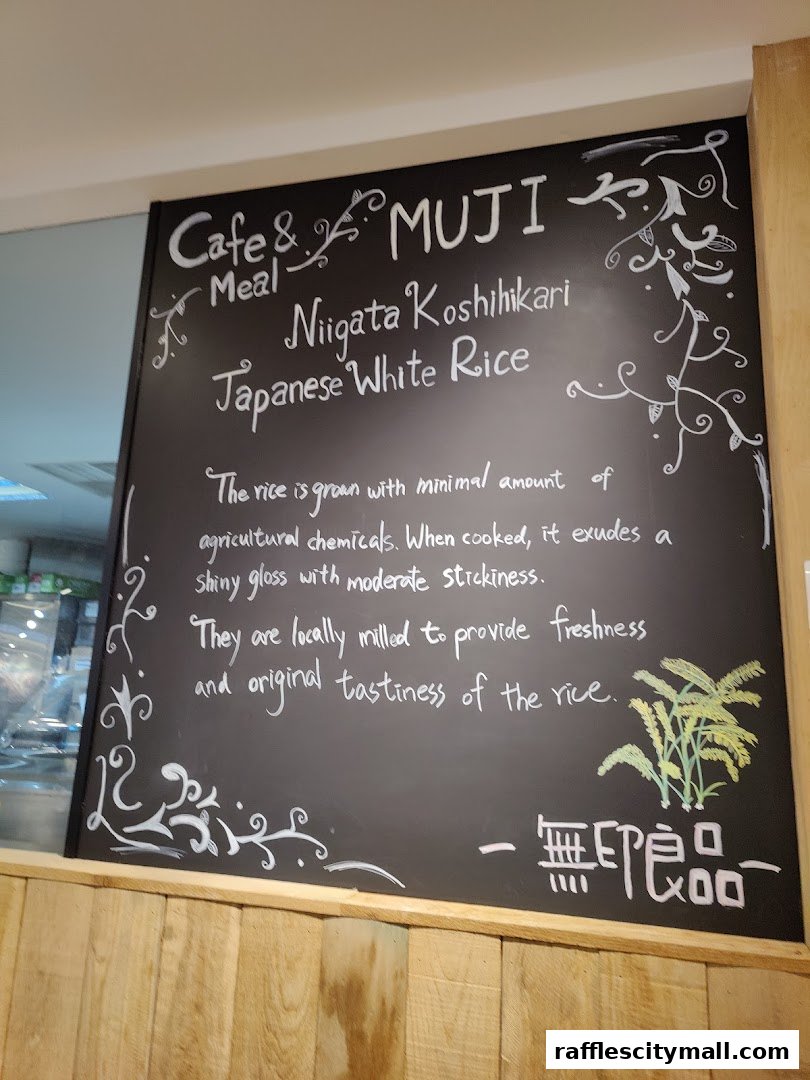 Cafe & Meal MUJI
Niigata Koshihikari
Japanese White Rice
The rice is grown with minimal amount of
agricultural chemicals. When cooked, it exudes a
shiny gloss with moderate stickiness.
They are locally milled to provide freshness
and original tastiness of the rice.
- 無印良品 -
rafflescitymall.com